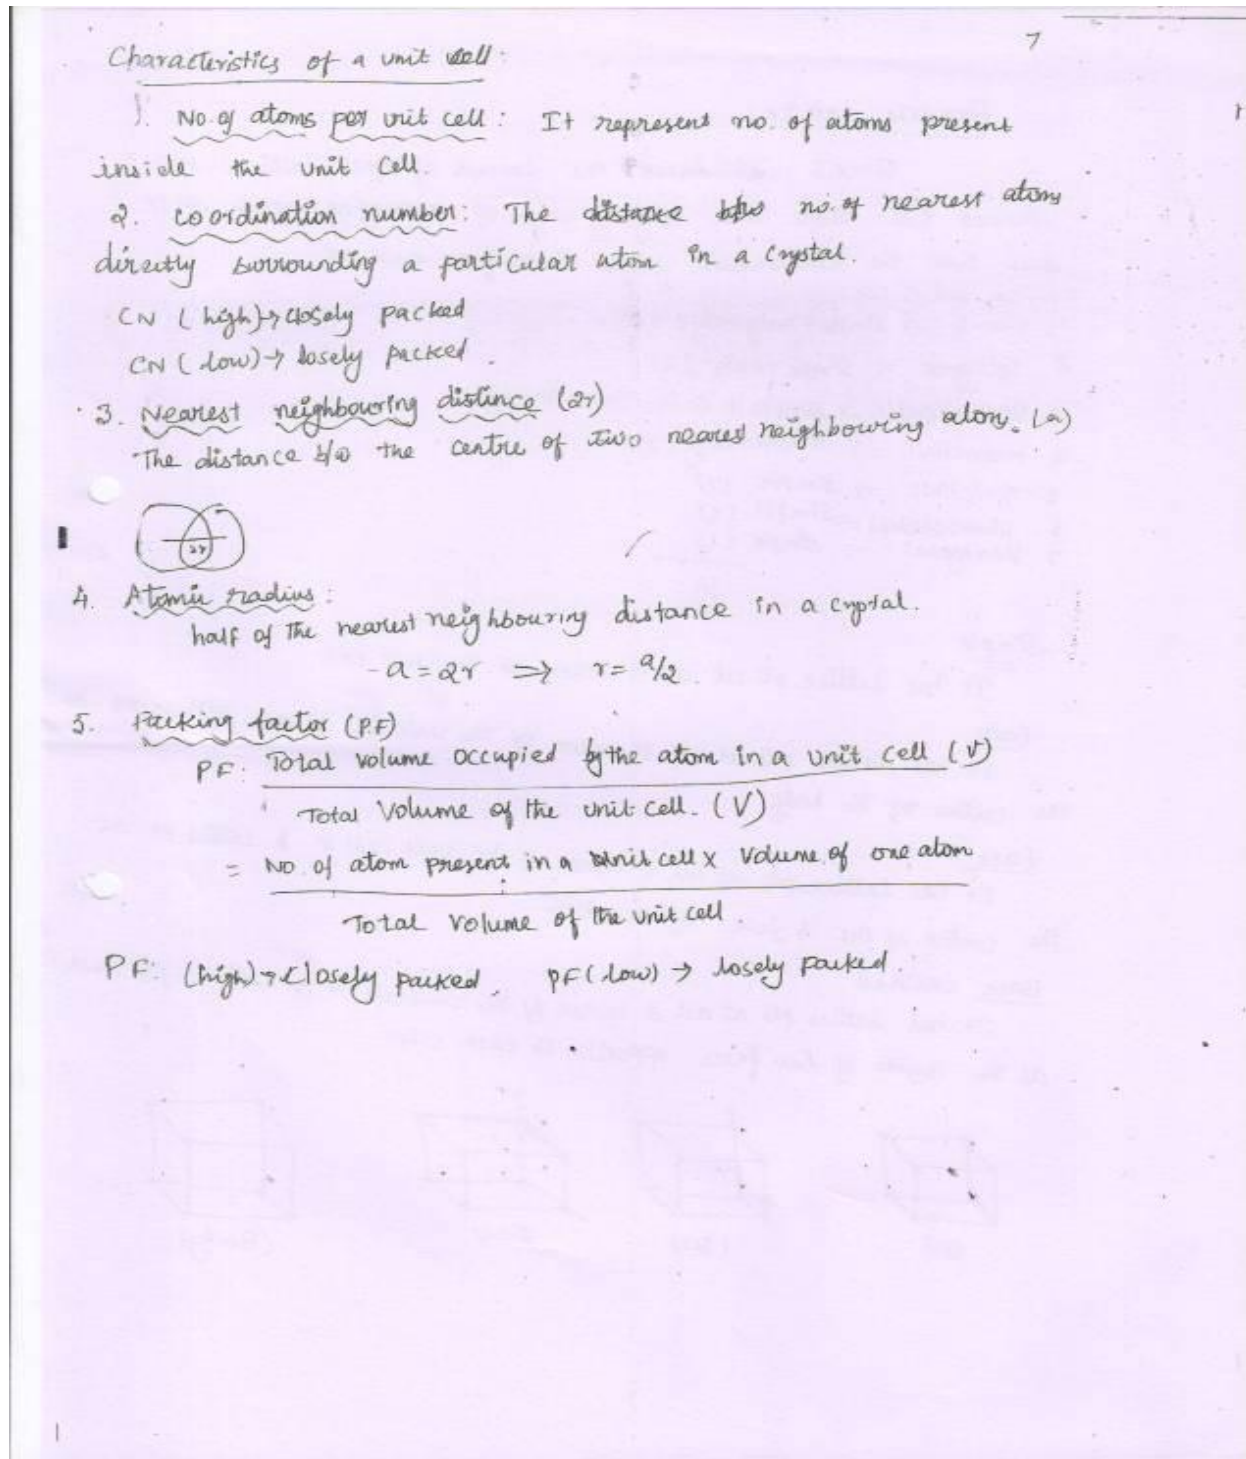 7
Characteristics of a unit cell:
1. No. of atoms per unit cell: It represent no. of atoms present
inside the unit cell.
2. co ordination number: The distance b/w no. of nearest atoms
directly surrounding a particular atom in a crystal.
CN (high)→ closely packed
CN (low)→ losely packed.
3. Nearest neighbouring distince (2r)
The distance b/w the centre of two nearest neighbouring atom. (a)
2r
4. Atomic radius:
half of the nearest neighbouring distance in a crystal.
a = 2r ⇒ r = a/2.
5. Packing factor (P.F)
PF: Total volume occupied by the atom in a unit cell (v)
Total Volume of the unit cell. (V)
= No. of atom present in a unit cell x Volume of one atom
Total volume of the unit cell.
PF: (high)→ closely packed. PF (low) → losely packed.